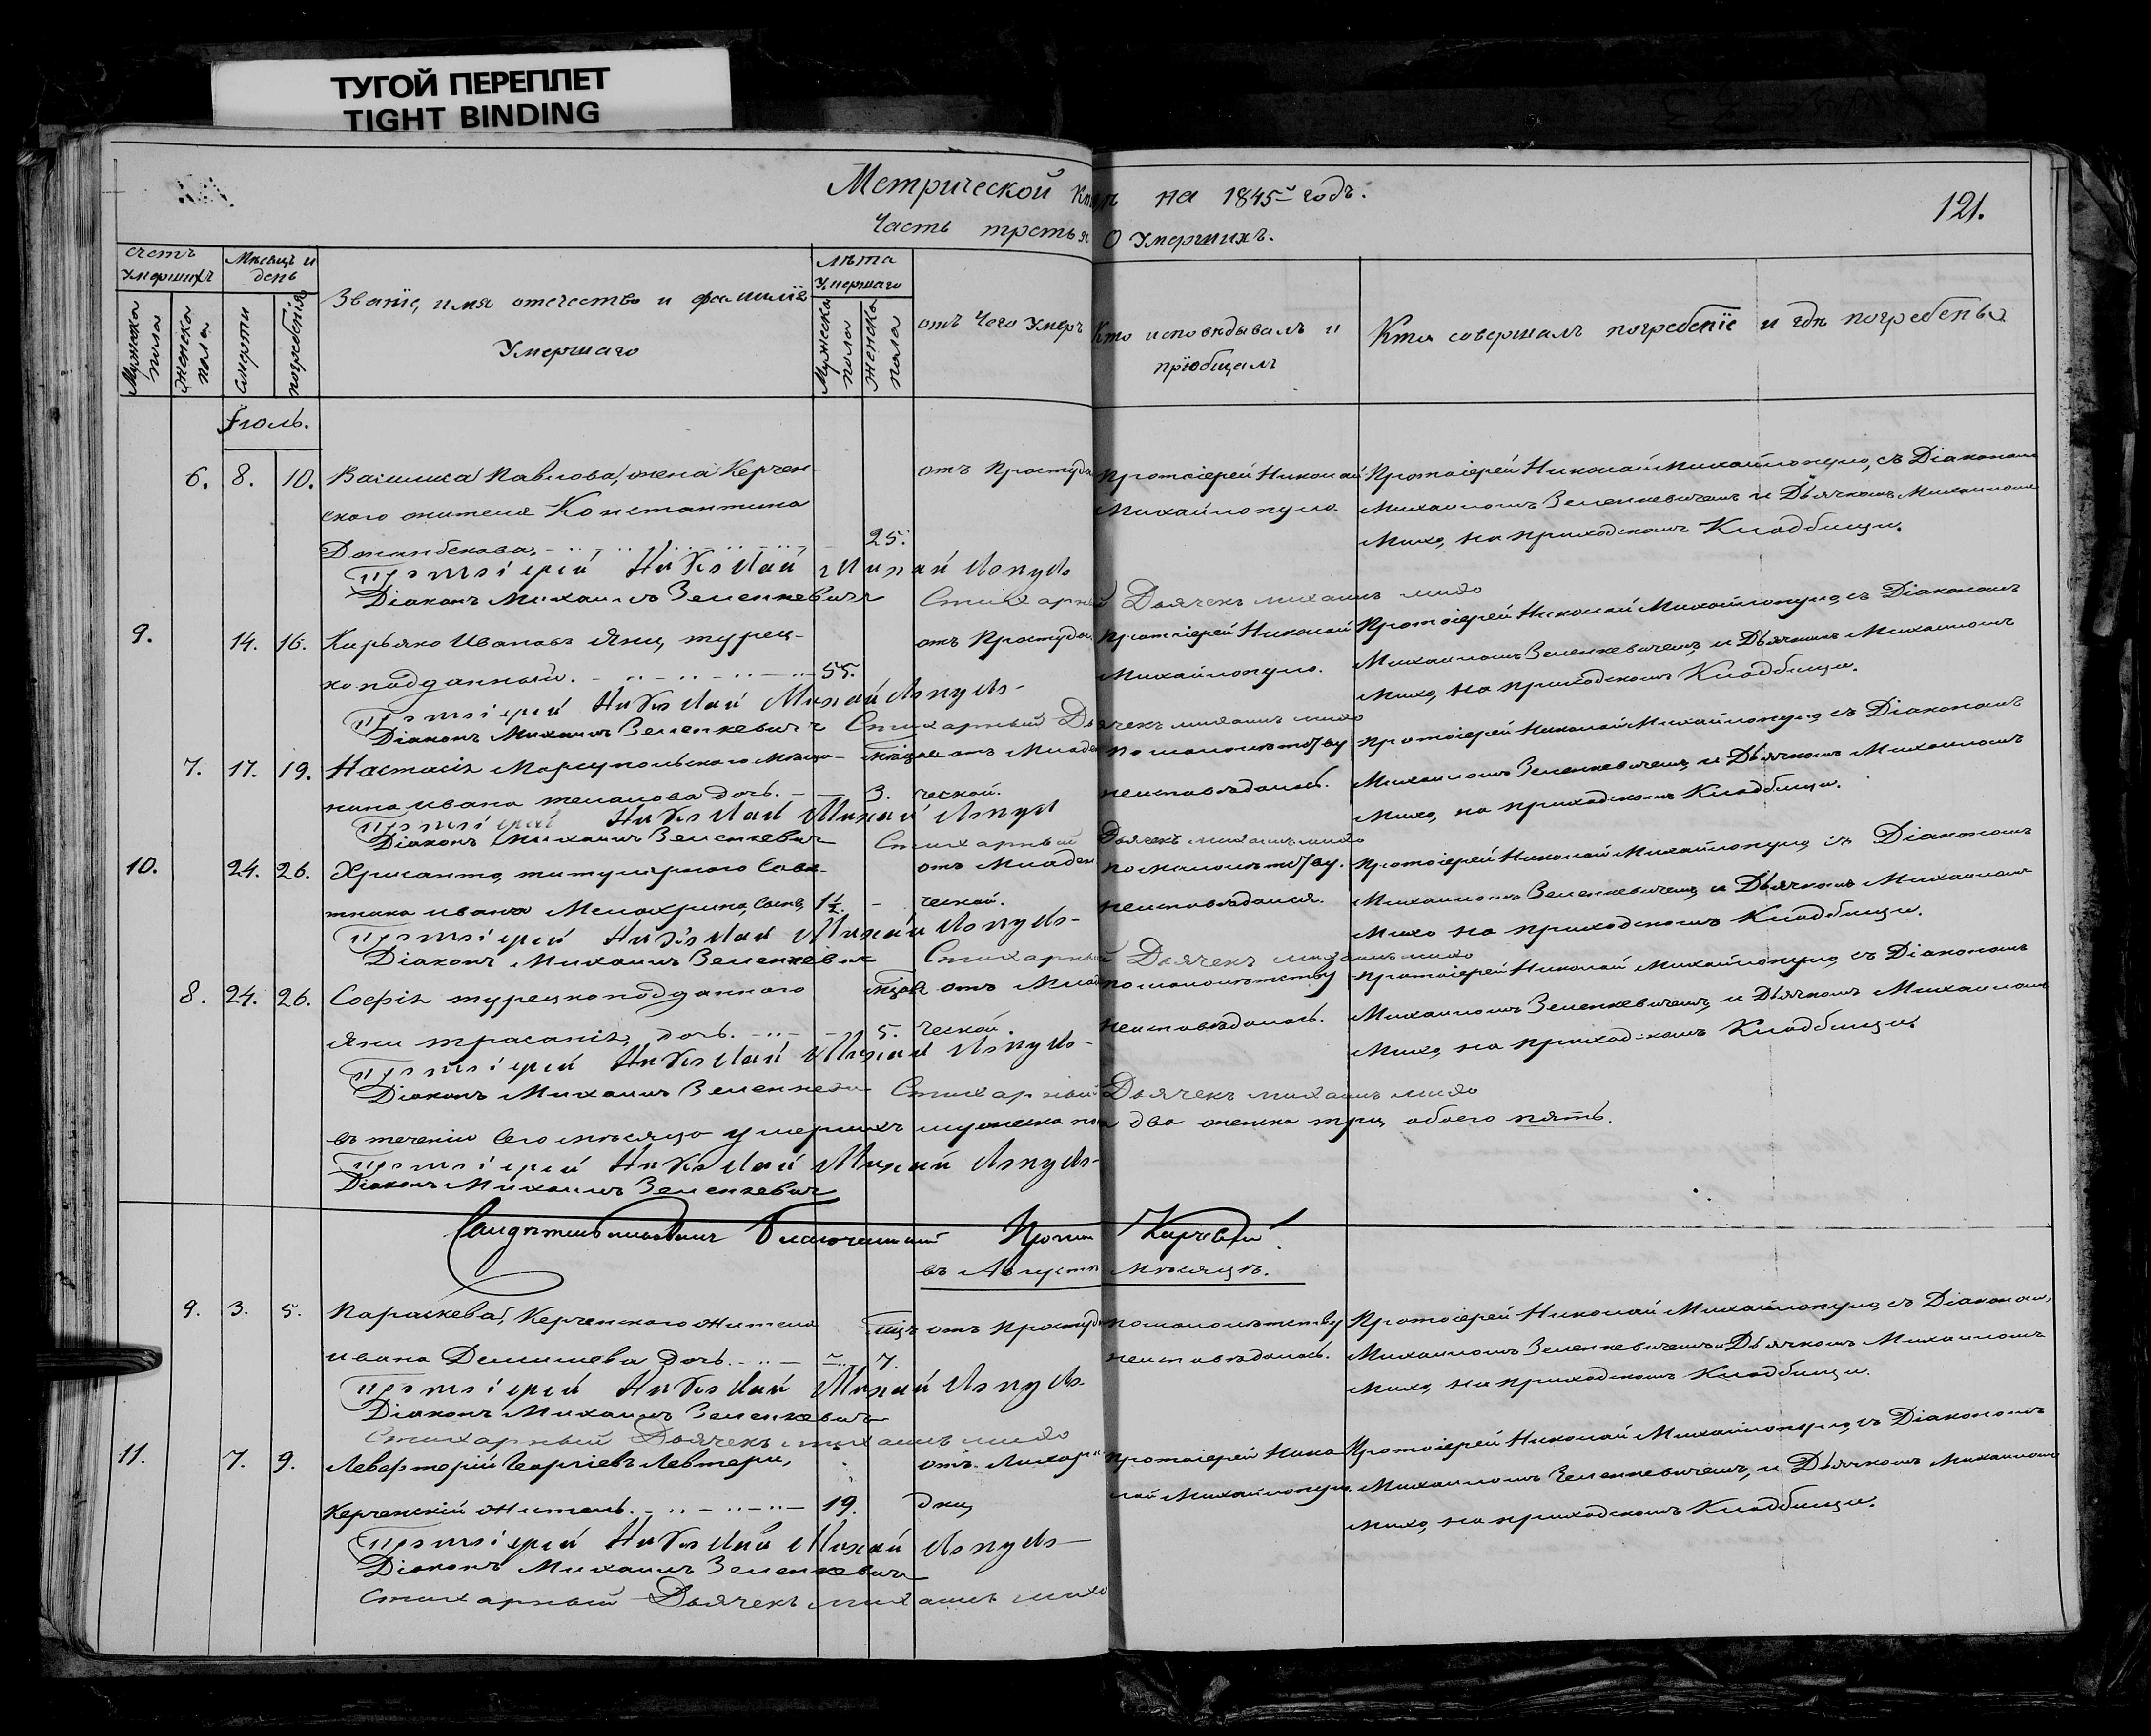 ТУГОЙ ПЕРЕПЛЕТ
TIGHT BINDING
Метрической книги на 1845й годъ.
121.
Часть третья о умершихъ.
Счетъ умершихъ
Мужеска пола
Женска пола
Мѣсяцъ и день
Смерти
погребенія
Званіе, имя отечество и фамилія
Умершаго
Лѣта Умершаго
Мужеска пола
Женска пола
отъ Чего Умеръ
Кто исповѣдывалъ и
пріобщалъ
Кто совершалъ погребеніе и гдѣ погребены
Іюль.
6. 8. 10. Василика Павлова, жена Керчен- отъ Простуды Протоіерей Николай Протоіерей Николай Михайлопуло, съ Діакономъ
скаго жителя Константина Михайлопуло. Михаиломъ Зеленкевичемъ и Дьячкомъ Михаиломъ
25. Михо, на приходскомъ Кладбищи.
Протоіерей Николай Михайлопуло
Діаконъ Михаилъ Зеленкевичъ Стихарный Дьячекъ михаилъ михо
9. 14. 16. Кирьяко Ивановъ Яни, турец- отъ Простуды Протоіерей Николай Протоіерей Николай Михайлопуло, съ Діакономъ
коподданный. 55. Михайлопуло. Михаиломъ Зеленкевичемъ, и Дьячкомъ Михаиломъ
Михо, на приходскомъ Кладбищи.
Протоіерей Николай Михайлопуло
Діаконъ Михаилъ Зеленкевичъ Стихарный Дьячекъ михаилъ михо
7. 17. 19. Настасія Маріупольскаго мѣща- мѣсяцов отъ Младен по малолѣтству Протоіерей Николай Михайлопуло, съ Діакономъ
нина ивана дочь. 3. ческой. неисповѣдалась. Михаиломъ Зеленкевичемъ, и Дьячкомъ Михаиломъ
Михо, на приходскомъ Кладбищи.
Протоіерей Николай Михайлопул
Діаконъ Михаилъ Зеленкевич Стихарный Дьячекъ михаилъ михо
10. 24. 26. Хрисанто, титулярного Сове- отъ Младен по малолѣтству. Протоіерей Николай Михайлопуло съ Діакономъ
тника ивана Мелахрино, Сынъ, 1½. - ческой. неисповѣдался. Михаиломъ Зеленкевичемъ, и Дьячкомъ Михаиломъ
Михо на приходскомъ Кладбищи.
Протоіерей Николай Михайлопуло
Діаконъ Михаилъ Зеленкевич Стихарный Дьячекъ михаилъ михо
8. 24. 26. Софія турецкоподданного отъ Млад по малолѣтству Протоіерей Николай Михайлопуло, съ Діакономъ
Яни дочь. 5. ческой. неисповѣдалась. Михаиломъ Зеленкевичемъ, и Дьячкомъ Михаиломъ
Михо, на приходскомъ Кладбищи.
Протоіерей Николай Михайлопуло
Діаконъ Михаилъ Зеленкевич Стихарный Дьячекъ михаилъ михо
въ теченіи Сего мѣсяца умершихъ мужеска пола два женска три, обоего пять.
Протоіерей Николай Михайлопуло
Діаконъ Михаилъ Зеленкевич
Свидѣтельствовалъ Благочинный
въ Августѣ мѣсяцѣ.
9. 3. 5. Параскева, Керченского жителя отъ Простуды по малолѣтству Протоіерей Николай Михайлопуло, съ Діакономъ,
ивана дочь. 7. неисповѣдалась. Михаиломъ Зеленкевичемъ и Дьячкомъ Михаиломъ
Михо, на приходскомъ Кладбищи.
Протоіерей Николай Михайлопуло
Діаконъ Михаилъ Зеленкевичъ
Стихарный Дьячекъ михаилъ михо
11. 7. 9. Левфтерій Георгіевъ Левтери, отъ Лихора Протоіерей Нико Протоіерей Николай Михайлопуло, съ Діакономъ
Керченскій житель. 19. дки, лай Михайлопуло. Михаиломъ Зеленкевичемъ, и Дьячкомъ Михаиломъ
Михо, на приходскомъ Кладбищи.
Протоіерей Николай Михайлопуло
Діаконъ Михаилъ Зеленкевичъ
Стихарный Дьячекъ михаилъ михо